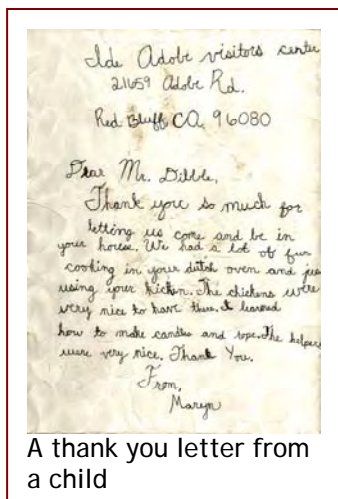 Ide Adobe visitors center
21659 Adobe Rd.
Red Bluff CA, 96080
Dear Mr. Dibble,
Thank you so much for
letting us come and be in
your house. We had a lot of fun
cooking in your dutch oven and jus
using your kichen. The chickens were
very nice to have there. I learned
how to make candles and rope. The helpers
were very nice. Thank You.
From,
Maryn
A thank you letter from
a child